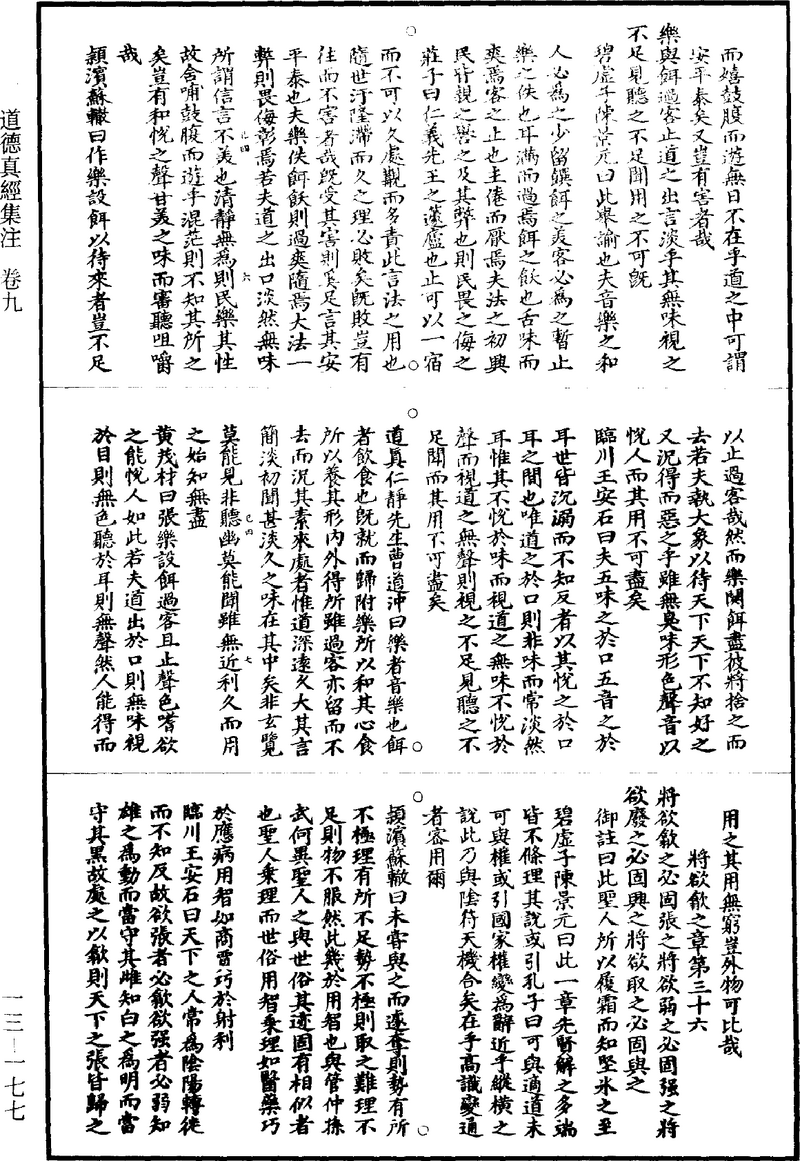 道德真經集注　卷九
而嬉鼓腹而遊無日不在乎道之中可謂
安平泰矣又豈有害者哉
樂與餌過客止道之出言淡乎其無味視之
不足見聽之不足聞用之不可旣
碧虛子陳景元曰此舉諭也夫音樂之和
人必為之少留饌餌之美客必為之暫止
樂之佚也耳滿而過焉餌之飫也舌味而
爽焉客之止也主倦而厭焉夫法之初興
民皆親之譽之及其弊也則民畏之侮之
莊子曰仁義先王之蘧廬也止可以一宿
而不可以久處觀而多責此言法之用也
隨世汙隆滯而久之理必敗矣旣敗豈有
往而不害者哉旣受其害則奚足言其安
平泰也夫樂佚餌飫則過爽隨焉大法一
弊則畏侮彰焉若夫道之出口淡然無味
所謂信言不美也清靜無為則民樂其性
故含哺鼓腹而遊乎混茫則不知其所之
矣豈有和悅之聲甘美之味而審聽咀嚼
哉
潁濱蘇轍曰作樂設餌以待來者豈不足
以止過客哉然而樂闋餌盡彼將捨之而
去若夫執大象以待天下天下不知好之
又況得而惡之乎雖無臭味形色聲音以
悅人而其用不可盡矣
臨川王安石曰夫五味之於口五音之於
耳世皆沉溺而不知反者以其悅之於口
耳之間也唯道之於口則非味而常淡然
耳惟其不悅於味而視道之無味不悅於
聲而視道之無聲則視之不足見聽之不
足聞而其用不可盡矣
道眞仁靜先生曹道沖曰樂者音樂也餌
者飲食也旣就而歸附樂所以和其心食
所以養其形內外得所雖過客亦留而不
去而況其素來處者惟道深遠久大其言
簡淡初聞甚淡久之味在其中矣非玄覽
莫能見非聽幽莫能聞雖無近利久而用
之始知無盡
黃茂材曰張樂設餌過客且止聲色嗜欲
之能悅人如此若夫道出於口則無味視
於目則無色聽於耳則無聲然人能得而
用之其用無窮豈外物可比哉
將欲歙之章第三十六
將欲歙之必固張之將欲弱之必固強之將
欲廢之必固興之將欲取之必固與之
御註曰此聖人所以履霜而知堅氷之至
碧虛子陳景元曰此一章先賢解之多端
皆不條理其說或引孔子曰可與適道未
可與權或引國家權變為辭近乎縱橫之
說此乃與陰符天機合矣在乎高識變通
者密用爾
潁濱蘇轍曰未嘗與之而遽奪則勢有所
不極理有所不足勢不極則取之難理不
足則物不服然此幾於用智也與管仲孫
武何異聖人之與世俗其迹固有相似者
也聖人乘理而世俗用智乘理如醫藥巧
於應病用智如商賈巧於射利
臨川王安石曰天下之人常為陰陽轉徙
而不知反故欲張者必歙欲强者必弱知
雄之為動而當守其雌知白之為明而當
守其黑故處之以歙則天下之張皆歸之
一三—一七七